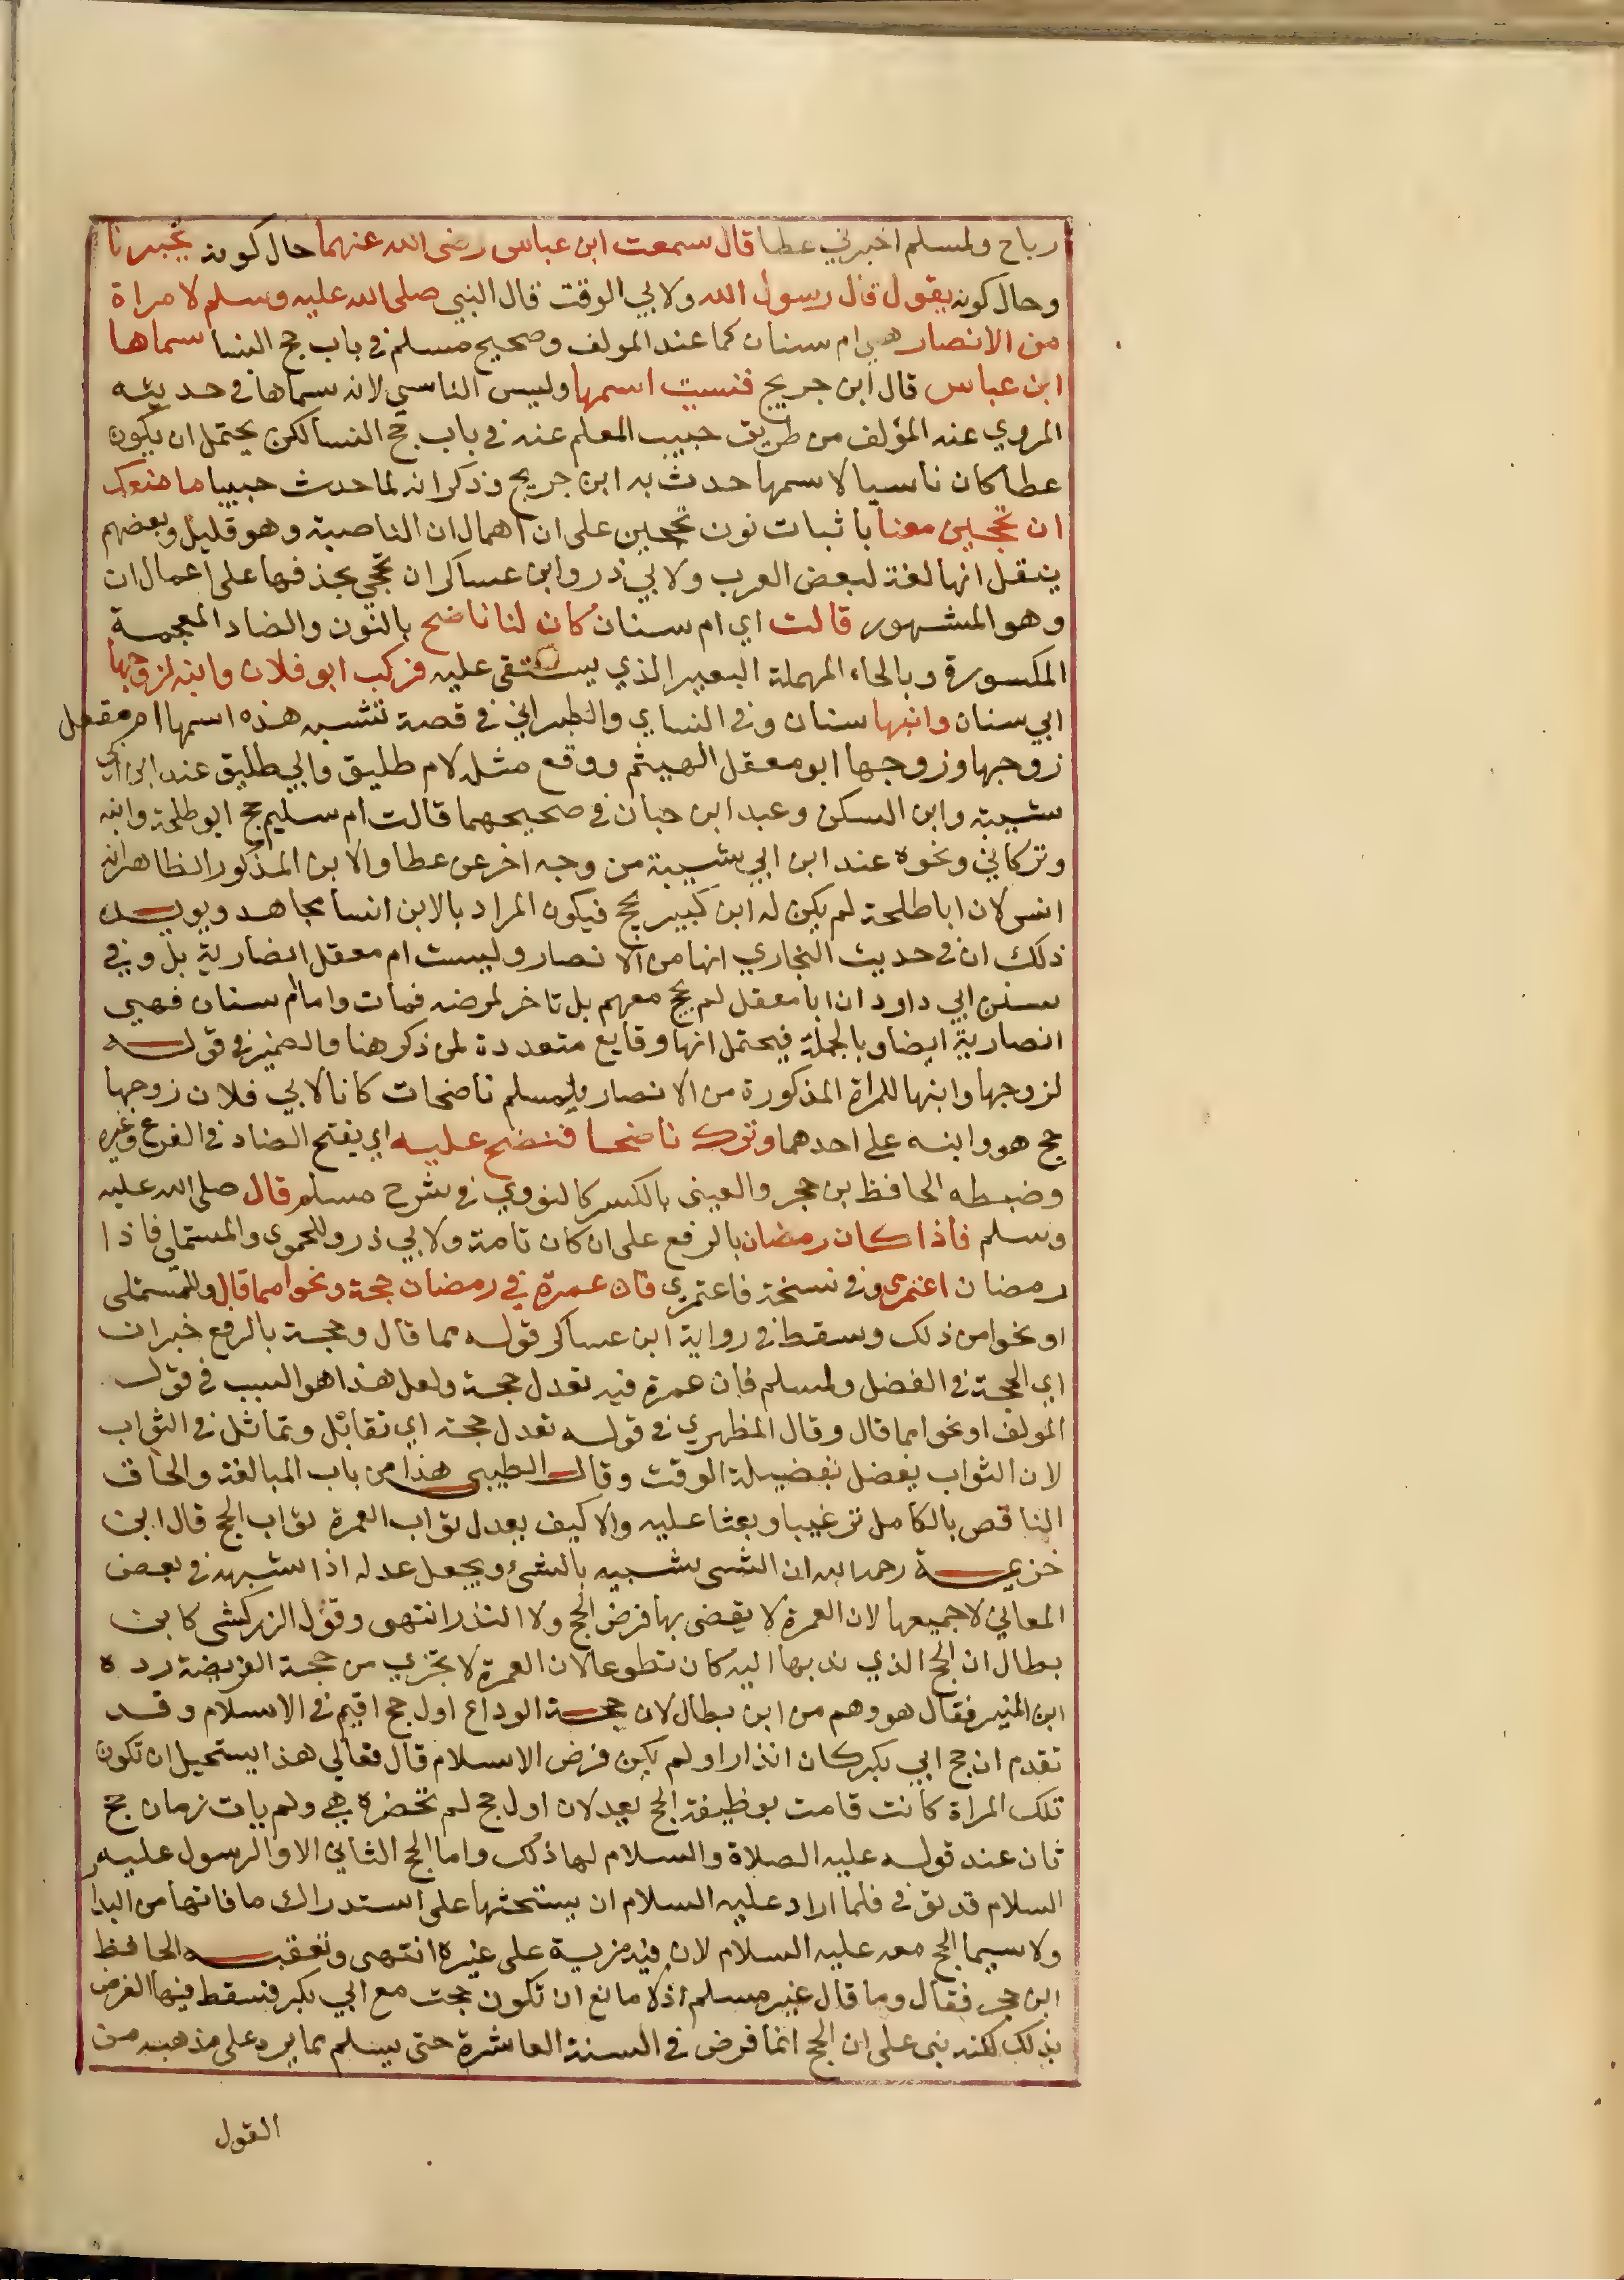 رباح ولمسلم اخبرني عطا قال سمعت ابن عباس رضى الله عنهما حال كونه يخبرنا
وحال كونه يقول قال رسول الله ولابي الوقت قال النبي صلى الله عليه وسلم لامراة
من الانصار هي ام سنان كما عند المولف وصحيح مسلم في باب حج النسا سماها
ابن عباس قال ابن جريج فنسيت اسمها وليس الناسى لانه سماها في حديثه
المروي عند المؤلف من طريق حبيب المعلم عنه في باب حج النسا لكن يحتمل ان يكون
عطا كان ناسيا لاسمها حدث به ابن جريج وذكرانه لما حدث حبيبا ما منعك
ان تحجين معنا باثبات نون تحجين على ان اهمال ان الناصبة وهو قليل وبعضهم
ينقل انها لغة لبعض العرب ولابي ذر وابن عساكر ان تحجى بحذفها على اعمال ان
وهو المشهور قالت اي ام سنان كان لنا ناضح بالنون والضاد المعجمة
المكسورة وبالحاء المهملة البعير الذي يستقى عليه فركب ابو فلان وابنه لزوجها
ابي سنان وابنها سنان وفي النساي والطبراني في قصة تشبه هذه اسمها ام معقل
زوجها وزوجها ابو معقل الهيثم ووقع مثله لام طليق وابي طليق عند ابن ابي
شيبة وابن السكن وعبد ابن حبان في صحيحهما قالت ام سليم حج ابو طلحة وابنه
وتركاني ونحوه عند ابن ابي شيبة من وجه اخر عن عطا والابن المذكور الظاهر انه
انس لان ابا طلحة لم يكن له ابن كبير يحج فيكون المراد بالابن انسا مجاهد ويويده
ذلك ان في حديث البخاري انها من الانصار وليست ام معقل انصارية بل وفي
سنن ابي داود ان ابا معقل لم يحج معهم بل تاخر لمرضه فمات واما ام سنان فهي
انصارية ايضا وبالجملة فيحتمل انها وقايع متعددة لمن ذكر هنا والضمير في قوله
لزوجها وابنها للمراة المذكورة من الانصار ولمسلم ناضحان كانا لابي فلان زوجها
حج هو وابنه على احدهما وترك ناضحا فننضح عليه اي بفتح الضاد في الفرع وغيره
وضبطه الحافظ بن حجر والعينى بالكسر كالنووي في شرح مسلم قال صلى الله عليه
وسلم فاذا كان رمضان بالرفع على ان كان تامة ولابي ذر وللحموى والمستملى فاذا
رمضان اعتمرى وفي نسخة فاعتمرى فان عمرة في رمضان حجة ونحوا مما قال وللمستملى
او نحوا من ذلك وسقط في رواية ابن عساكر قوله مما قال وحجة بالرفع خبران
اي الحجة في الفضل ولمسلم فان عمرة فيه تعدل حجة ولعل هذا هو السبب في قول
المولف او نحوا مما قال وقال المظهري في قوله تعدل حجة اي تقابل وتماثل في الثواب
لان الثواب يفضل بفضيلة الوقت وقال الطيبى هذا من باب المبالغة والحاق
الناقص بالكامل ترغيبا وبعثا عليه والا كيف يعدل ثواب العمرة ثواب الحج قال ابن
خزيمة رحمه الله ان الشى شبيه بالشئ ويجعل عدله اذا شبهه في بعض
المعاني لا جميعها لان العمرة لا يقضى بها فرض الحج ولا النذر انتهى وقول الزركشى كابن
بطال ان الحج الذي ندبها اليه كان تطوعا لان العمرة لا تجزي من حجة الفريضة رده
ابن المنير فقال هو وهم من ابن بطال لان حجة الوداع اول حج اقيم في الاسلام وقد
تقدم ان حج ابي بكر كان انذارا ولم يكن فرض الاسلام قال فعالي هذا يستحيل ان تكون
تلك المراة كانت قامت بوظيفة الحج بعد لان اول حج لم تحضره هي ولم يات زمان حج
ثان عند قوله عليه الصلاة والسلام لها ذلك واما الحج الثاني الا والرسول عليه
السلام قد توفي فلما اراد عليه السلام ان يستحثها على استدراك ما فاتها من البدا
ولا سيما الحج معه عليه السلام لان فيه مزية على غيره انتهى وتعقبه الحافظ
ابن حجر فقال وما قال غير مسلم اذ لا مانع ان تكون حجت مع ابي بكر فسقط فيها الفرض
بذلك لكنه بنى على ان الحج انما فرض في السنة العاشرة حتى يسلم مما يرد على مذهبه من
القول